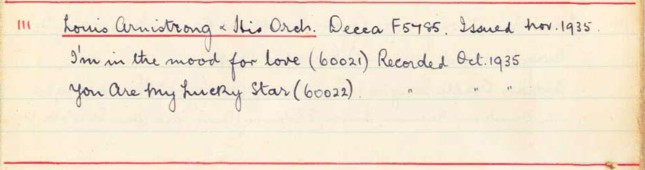 111 Louis Armstrong & His Orch. Decca F5785. Issued Nov. 1935.
I'm in the mood for love (60021) Recorded Oct. 1935
You Are My Lucky Star (60022) " " "